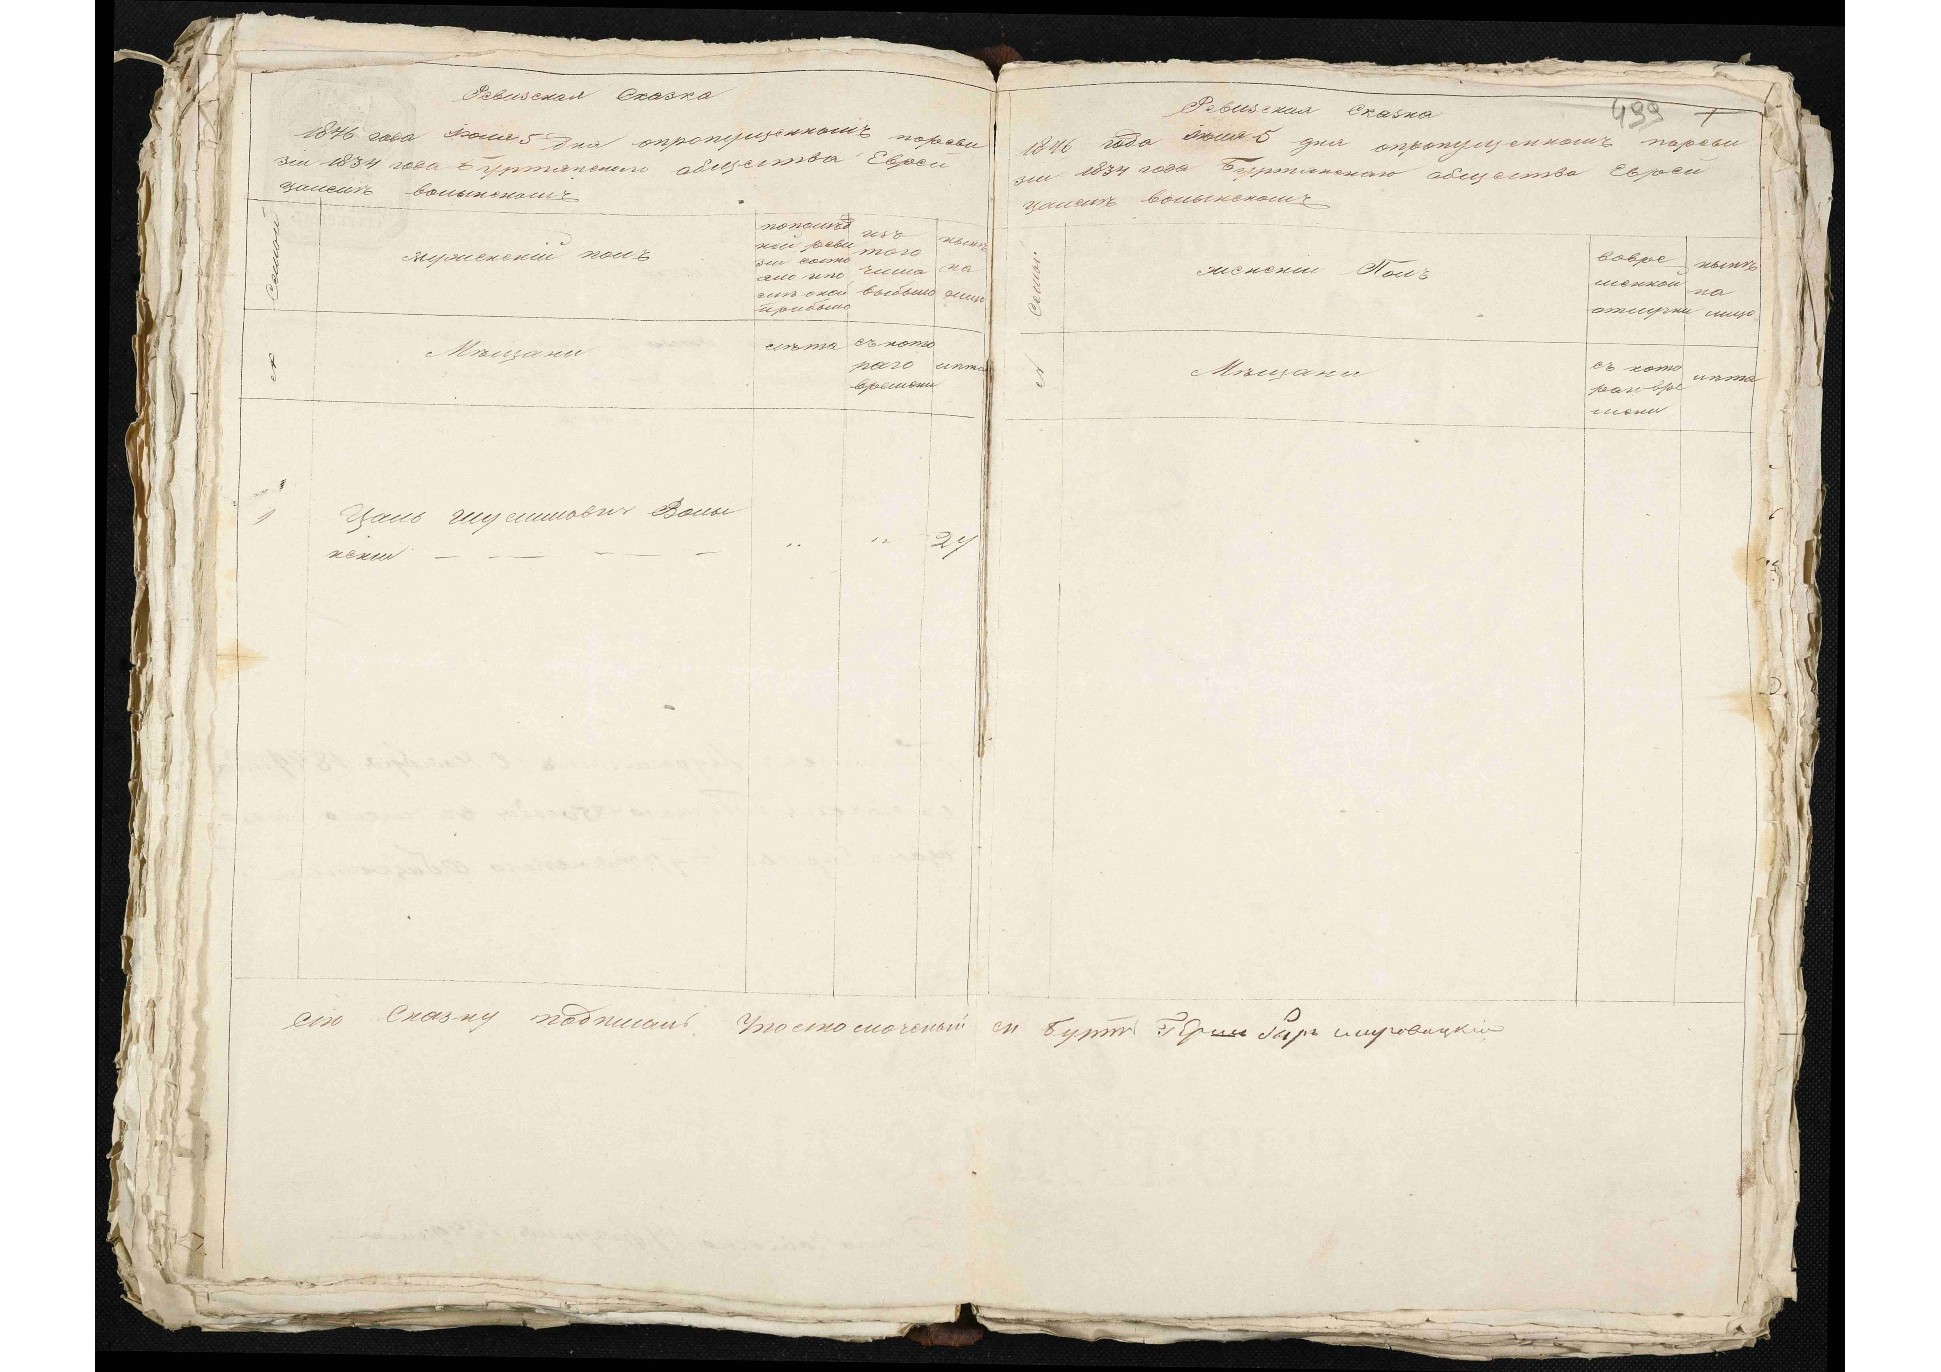 Ревизская Сказка
1846 года Июля 5 Дня опропущенномъ пореви
зіи 1834 года Буртянского общества Евреи
Цалемъ Волынскомъ
Семьи
мужескій полъ
попослѣд
ней реви
зіи состо
яло ипо
слѣ оной
прибыло
изъ
того
числа
выбыло
нынѣ
на
лицо
№
Мѣщани
лѣта
съ кото
раго
времени
лѣта
1
Цаль Шулимович Волы
нскии — — — — — —
„
„
27
499
Ревизская Сказка
1846 года Июля 5 дня опропущенномъ пореви
зіи 1834 года Буртянскаго общества Евреи
Цалемъ Волынскомъ
Семьи
женскіи Полъ
вовре
менной
отлучки
нынѣ
на
лицо
№
Мѣщани
съ кото
раго вре
мени
лѣта
Сію Сказку подписалъ Уполномоченый